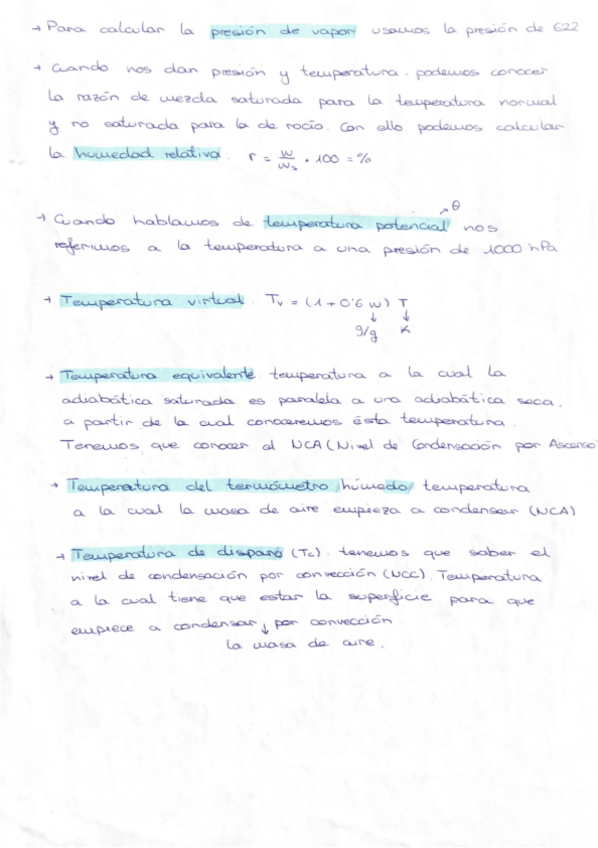 → Para calcular la presión de vapor usamos la presión de 622
→ Cuando nos dan presión y temperatura. podemos conocer
la razón de mezcla saturada para la temperatura normal
y no saturada para la de rocío. Con ello podemos calcular
la humedad relativa. r = w/ws · 100 = %
↗ θ
→ Cuando hablamos de temperatura potencial nos
referimos a la temperatura a una presión de 1000 hPa
→ Temperatura virtual. Tv = (1 + 0'6 w) T
↓ ↓
g/g K
→ Temperatura equivalente. temperatura a la cual la
adiabática saturada es paralela a una adiabática seca,
a partir de la cual conoceremos ésta temperatura.
Tenemos que conocer el NCA (Nivel de Condensación por Ascenso
→ Temperatura del termómetro húmedo temperatura
a la cual la masa de aire empieza a condensar (NCA)
→ Temperatura de disparo (Tc). tenemos que saber el
nivel de condensación por convección (NCC). Temperatura
a la cual tiene que estar la superficie para que
empiece a condensar ↓ por convección
la masa de aire.